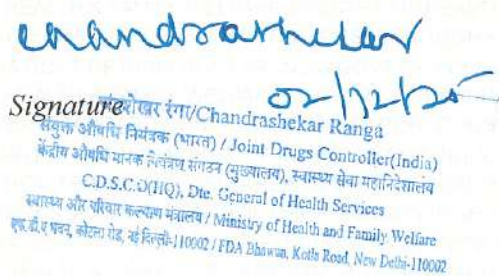 Chandrashekar
02/12/25
Signature
चंद्रशेखर रंगा/Chandrashekar Ranga
संयुक्त औषधि नियंत्रक (भारत) / Joint Drugs Controller(India)
केंद्रीय औषधि मानक नियंत्रण संगठन (मुख्यालय), स्वास्थ्य सेवा महानिदेशालय
C.D.S.C.O(HQ), Dte. General of Health Services
स्वास्थ्य और परिवार कल्याण मंत्रालय / Ministry of Health and Family Welfare
एफ.डी.ए भवन, कोटला रोड, नई दिल्ली-110002 / FDA Bhawan, Kotla Road, New Delhi-110002